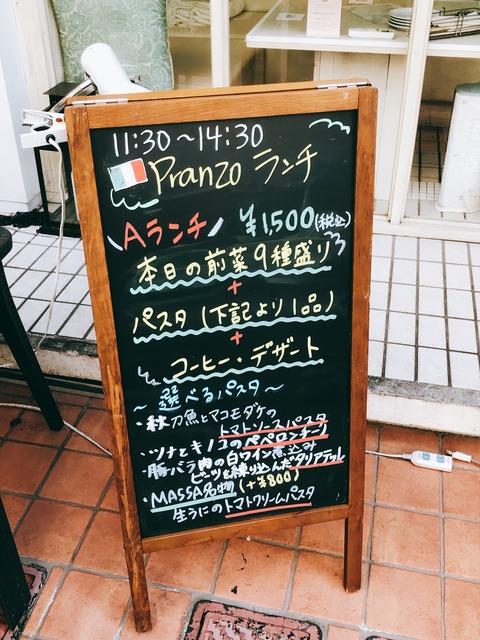 11:30〜14:30
Pranzo ランチ
Aランチ ¥1,500(税込)
本日の前菜9種盛り
+
パスタ(下記より1品)
+
コーヒー・デザート
〜選べるパスタ〜
・秋刀魚とマコモダケの
トマトソースパスタ
・ツナとキノコのペペロンチーノ
・豚バラ肉の白ワイン煮込み
ビーツを練り込んだタリアテッレ
・MASSA名物(+¥800)
生うにのトマトクリームパスタ